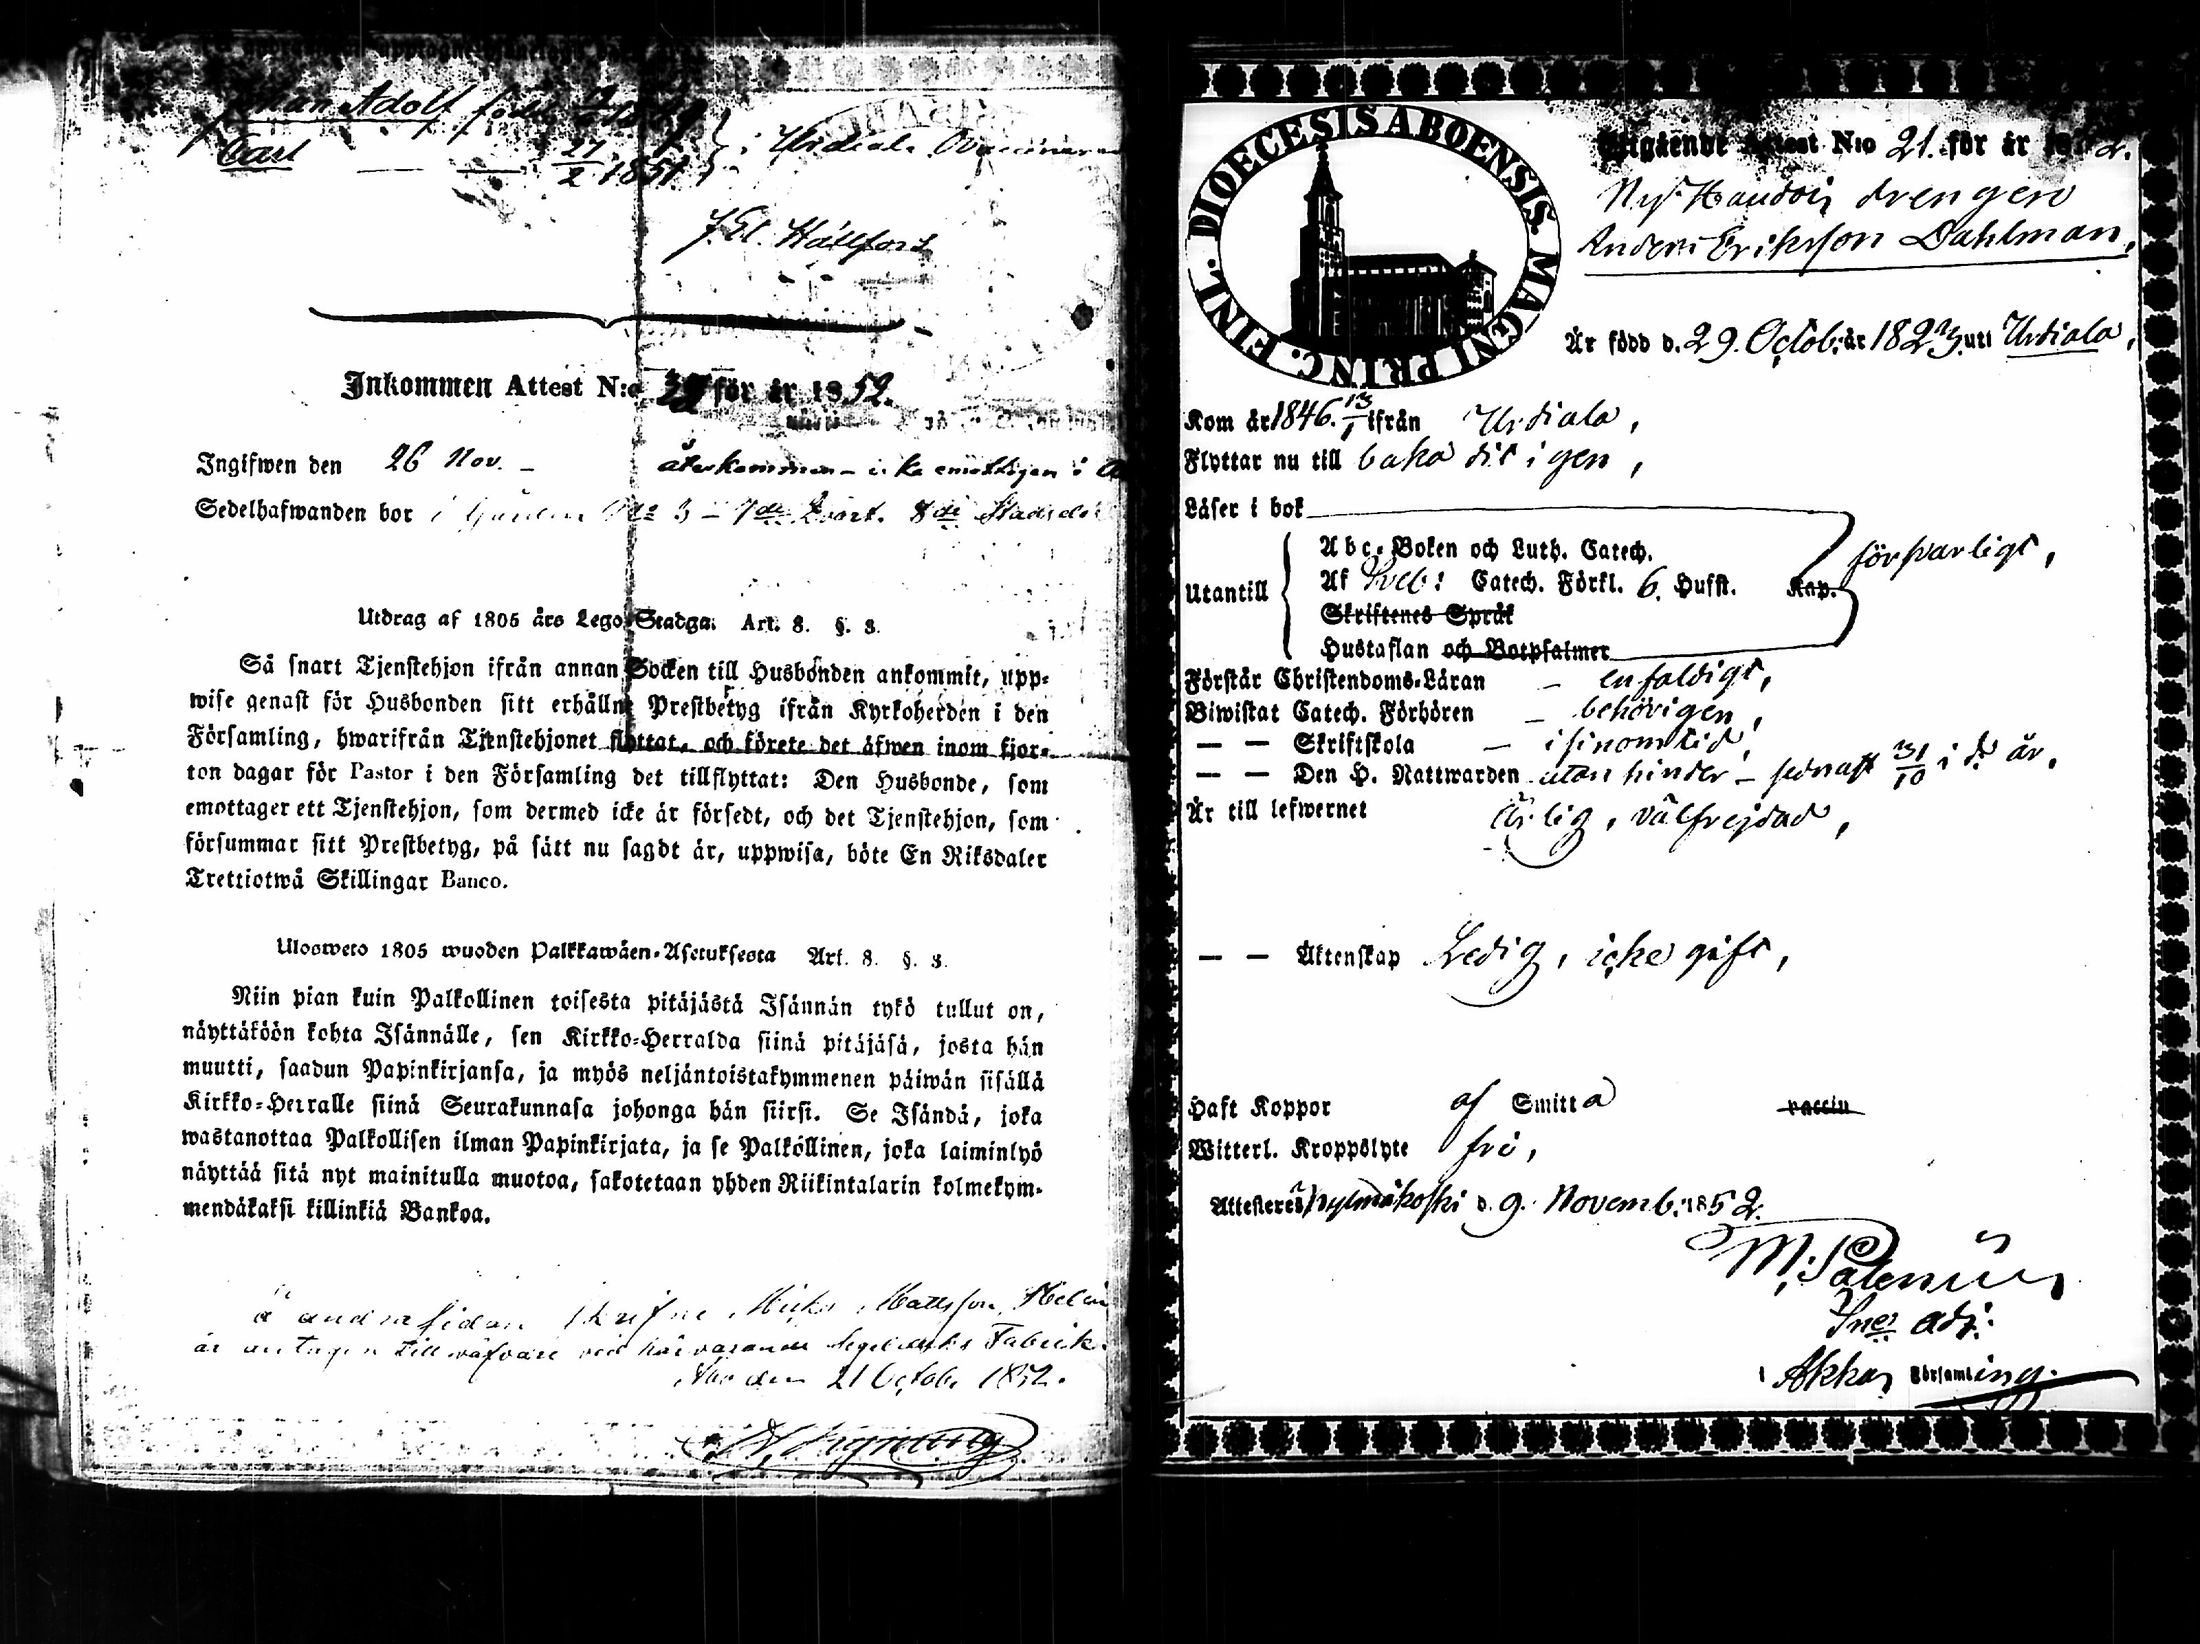 Johan Adolf född
Carl — — 27/2 1851. i Urdiala Ovaccinerade
J. El. Hällfors
Inkommen Attest N:o 39 för år 1852.
Ingifwen den 26 Nov. – återkommen – icke emottagen i
Sedelhafwanden bor i Gården No 3 – 7de Qvart. 8de Stadsdel
Utdrag af 1805 års Lego-Stadga. Art. 8. §. 3.
Så snart Tjenstehjon ifrån annan Socken till Husbonden ankommit, upp-
wise genast för Husbonden sitt erhållne Prestbetyg ifrån Kyrkoherden i den
Församling, hwarifrån Tjenstehjonet flyttat, och förete det äfwen inom fjor-
ton dagar för Pastor i den Församling det tillflyttat: Den Husbonde, som
emottager ett Tjenstehjon, som dermed icke är försedt, och det Tjenstehjon, som
försummar sitt Prestbetyg, på sätt nu sagdt är, uppwisa, böte En Riksdaler
Trettiotwå Skillingar Banco.
Ulosweto 1805 wuoden Palkkawäen-Asetuksesta Art. 8. §. 3.
Niin pian kuin Palkollinen toisesta pitäjästä Isännän tykö tullut on,
näyttäköön kohta Isännälle, sen Kirkko-Herralda siinä pitäjäsä, josta hän
muutti, saadun Papinkirjansa, ja myös neljäntoistakymmenen päiwän sisällä
Kirkko-Herralle siinä Seurakunnasa johonga hän siirsi. Se Isändä, joka
wastanottaa Palkollisen ilman Papinkirjata, ja se Palkollinen, joka laiminlyö
näyttää sitä nyt mainitulla muotoa, sakotetaan yhden Riikintalarin kolmekym-
mendäkaksi killinkiä Bankoa.
å andra sidan skrifne Mattsson
är antagen till väfvare ved härvarande Segelduks Fabrik.
Åbo den 21 Octob. 1852.
FINL. DIOECESIS ABOENSIS MAGNI PRINC.
Utgående Attest N:o 21. för år 1852.
drengen
Anders Eriksson Dahlman,
Är född d. 29. Octob. år 1823. uti Urdiala,
Kom år 1846. 13/1 ifrån Urdiala,
Flyttar nu till baka dit igen,
Läser i bok
Abc-Boken och Luth. Catech. försvarligt,
Utantill Af Sveb: Catech. Förkl. 6. Hufst. Kap.
Skriftenes Språk
Hustaflan och Botpsalmer
Förstår Christendoms-Läran – enfaldigt,
Biwistat Catech. Förhören – behörigen,
— — Skriftskola – i sinom tid,
— — Den H. Nattwarden utan hinder – senast 31/10 i d. år.
Är till lefwernet Ärlig, välfrejdad,
— — Äktenskap Ledig, icke gift,
Haft Koppor af Smitta vaccin
Witterl. Kroppslyte fri,
Attesteres Kylmäkoski d. 9. Novemb. 1852.
M: Polenius
Sacr. adj:
i Akkas Församling.